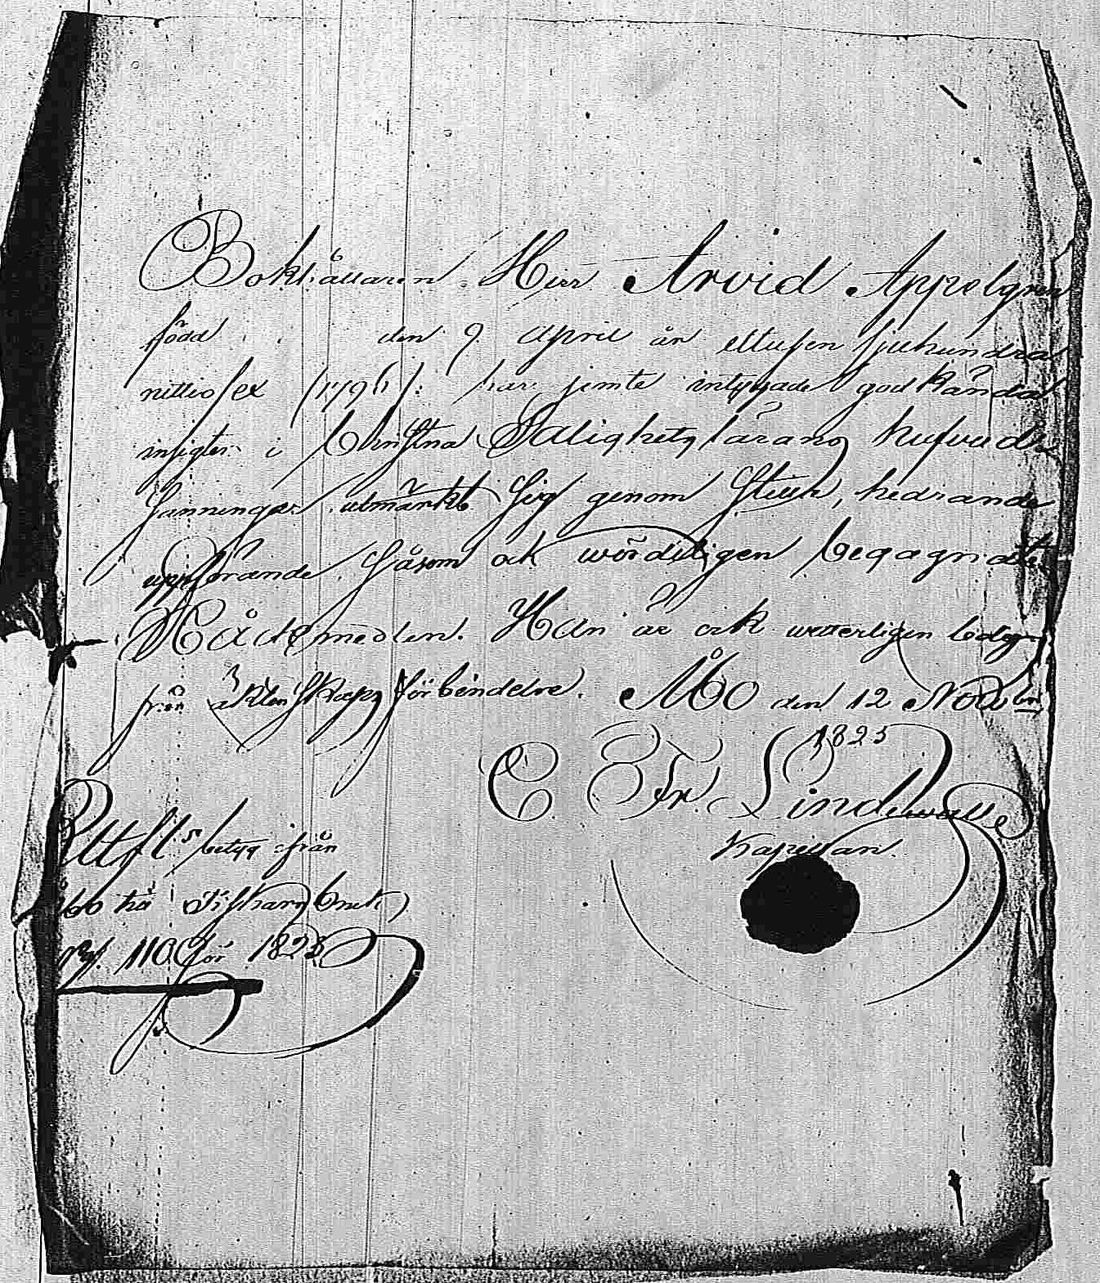 Bokhållaren Herr Arvid Appelgren
född den 9 April år ettusen sjuhundra
nittiosex (1796): har jemte intygade godkända
insigter i Christna Salighetslärans hufvud
sanningar utmärkt sig genom stilla, hedrande
uppförande, såsom ock wördeligen begagnat
Nådemedlen. Han är ock wetterligen ledig
från äktenskaps förbindelse. Mo den 12 Novbr
1825
C. Fr. Lindewall
Kapellan.
Attsts betyg från
bruk
110 för 1825